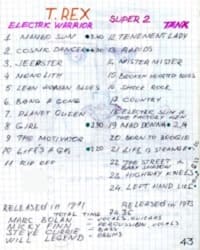 T. REX
ELECTRIC WARRIOR
SUPER 2
TANX
1 MAMBO SUN
2 COSMIC DANCER
3 JEEPSTER
4 MONOLITH
5 LEAN WOMAN BLUES
6 BANG A GONG
7 PLANET QUEEN
8 GIRL
9 THE MOTIVATOR
10 LIFE'S A GAS
11 RIP OFF
12 TENEMENT LADY
13 RAPIDS
14 MISTER MISTER
15 BROKEN HEARTED BLUES
16 SHOCK ROCK
17 COUNTRY
18 ELECTRIC SLIM & THE FACTORY HEN
19 MAD DONNA
20 BORN TO BOOGIE
21 LIFE IS STRANGE
22 THE STREET &
23 HIGHWAY KNEES
24 LEFT HAND LUKE
RELEASED IN 1971
RELEASED IN 1973
TOTAL TIME
MARC BOLAN - VOCALS, GUITARS
MICKY FINN - PERCUSSION VOCALS
STEVE CURRIE - BASS
WILL LEGEND - DRUMS
43